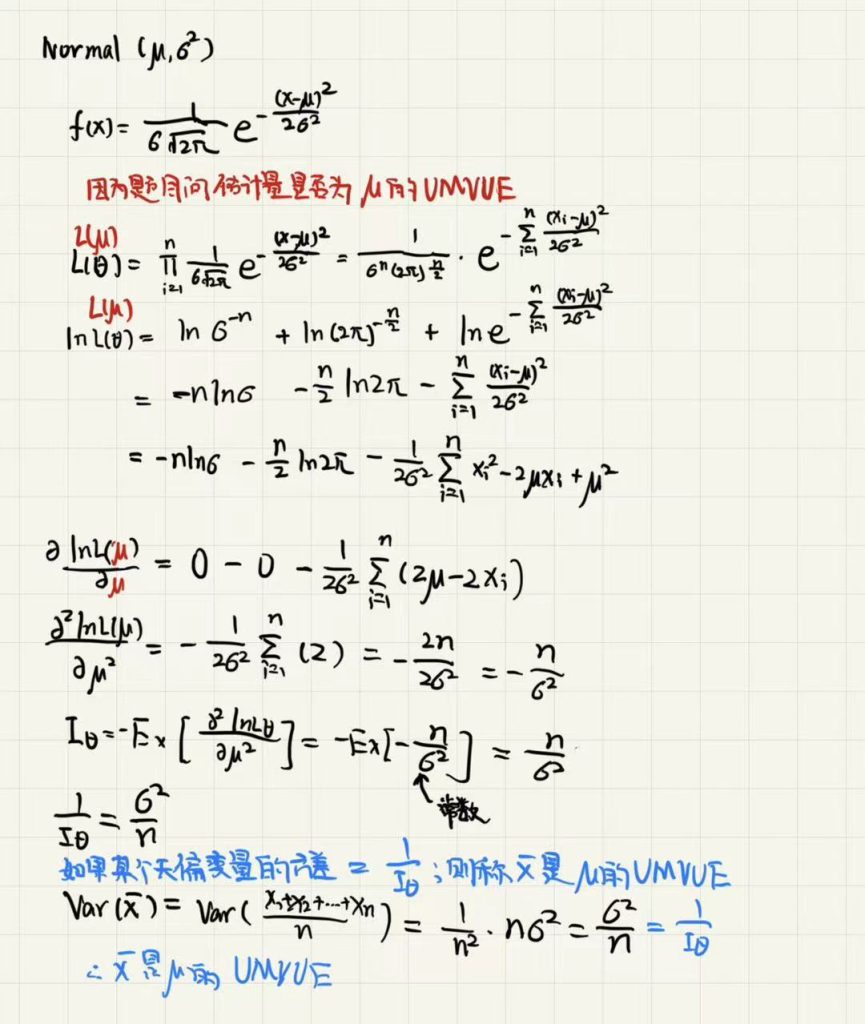 Normal (μ,σ²)
f(x)= 1/(σ√2π) e^(-(x-μ)²/2σ²)
因为题目问估计量是否为 μ的UMVUE
L(μ)
L(θ) = ∏_{i=1}^{n} 1/(σ√2π) e^(-(x-μ)²/2σ²) = 1/(σⁿ(2π)^(n/2)) · e^(-∑_{i=1}^{n} (xi-μ)²/2σ²)
L(μ)
ln L(θ) = ln σ^(-n) + ln (2π)^(-n/2) + ln e^(-∑_{i=1}^{n} (xi-μ)²/2σ²)
= -nlnσ - n/2 ln2π - ∑_{i=1}^{n} (xi-μ)²/2σ²
= -nlnσ - n/2 ln2π - 1/2σ² ∑_{i=1}^{n} xi² - 2μxi + μ²
∂lnL(μ)/∂μ = 0 - 0 - 1/2σ² ∑_{i=1}^{n} (2μ-2xi)
∂²lnL(μ)/∂μ² = - 1/2σ² ∑_{i=1}^{n} (2) = - 2n/2σ² = - n/σ²
Iθ = -Ex[∂² lnLθ/∂μ²] = -Ex[-n/σ²] = n/σ²
常数
1/Iθ = σ²/n
如果某个无偏变量的方差 = 1/Iθ ; 则称 x̄ 是 μ的UMVUE
Var(x̄) = Var( (x₁+x₂+...+xn)/n ) = 1/n² · nσ² = σ²/n = 1/Iθ
∴ x̄ 是 μ的 UMVUE